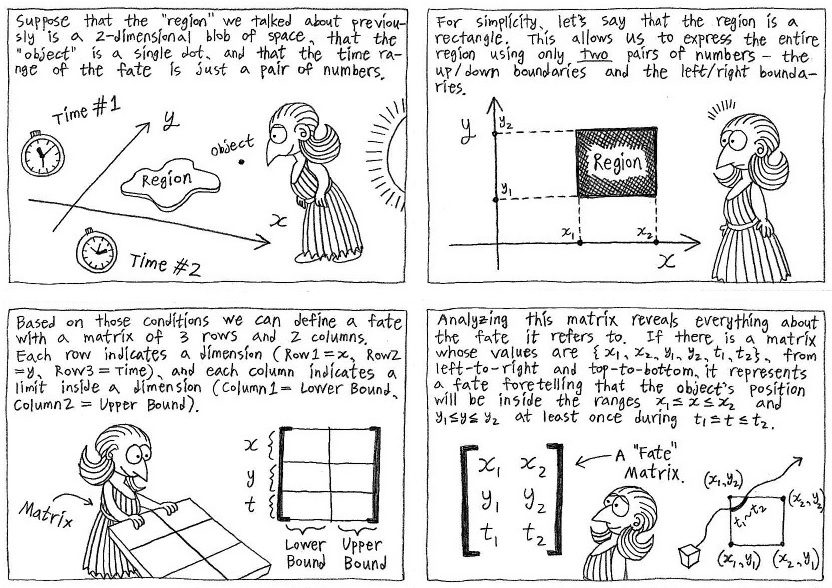 Suppose that the "region" we talked about previou-
sly is a 2-dimensional blob of space, that the
"object" is a single dot, and that the time ra-
nge of the fate is just a pair of numbers.
Time #1
y
object
Region
x
Time #2
For simplicity, let's say that the region is a
rectangle. This allows us to express the entire
region using only two pairs of numbers - the
up/down boundaries and the left/right bounda-
ries.
y
y2
Region
y1
x1
x2
x
Based on those conditions we can define a fate
with a matrix of 3 rows and 2 columns.
Each row indicates a dimension (Row1=x, Row2
=y, Row3=Time), and each column indicates a
limit inside a dimension (Column1= Lower Bound,
Column2 = Upper Bound).
Matrix
x
y
t
Lower Bound
Upper Bound
Analyzing this matrix reveals everything about
the fate it refers to. If there is a matrix
whose values are {x1, x2, y1, y2, t1, t2}, from
left-to-right and top-to-bottom, it represents
a fate foretelling that the object's position
will be inside the ranges x1≤x≤x2 and
y1≤y≤y2 at least once during t1≤t≤t2.
x1 x2
y1 y2
t1 t2
A "Fate"
Matrix.
(x1,y2)
(x2,y2)
t1
t2
(x1,y1)
(x2,y1)